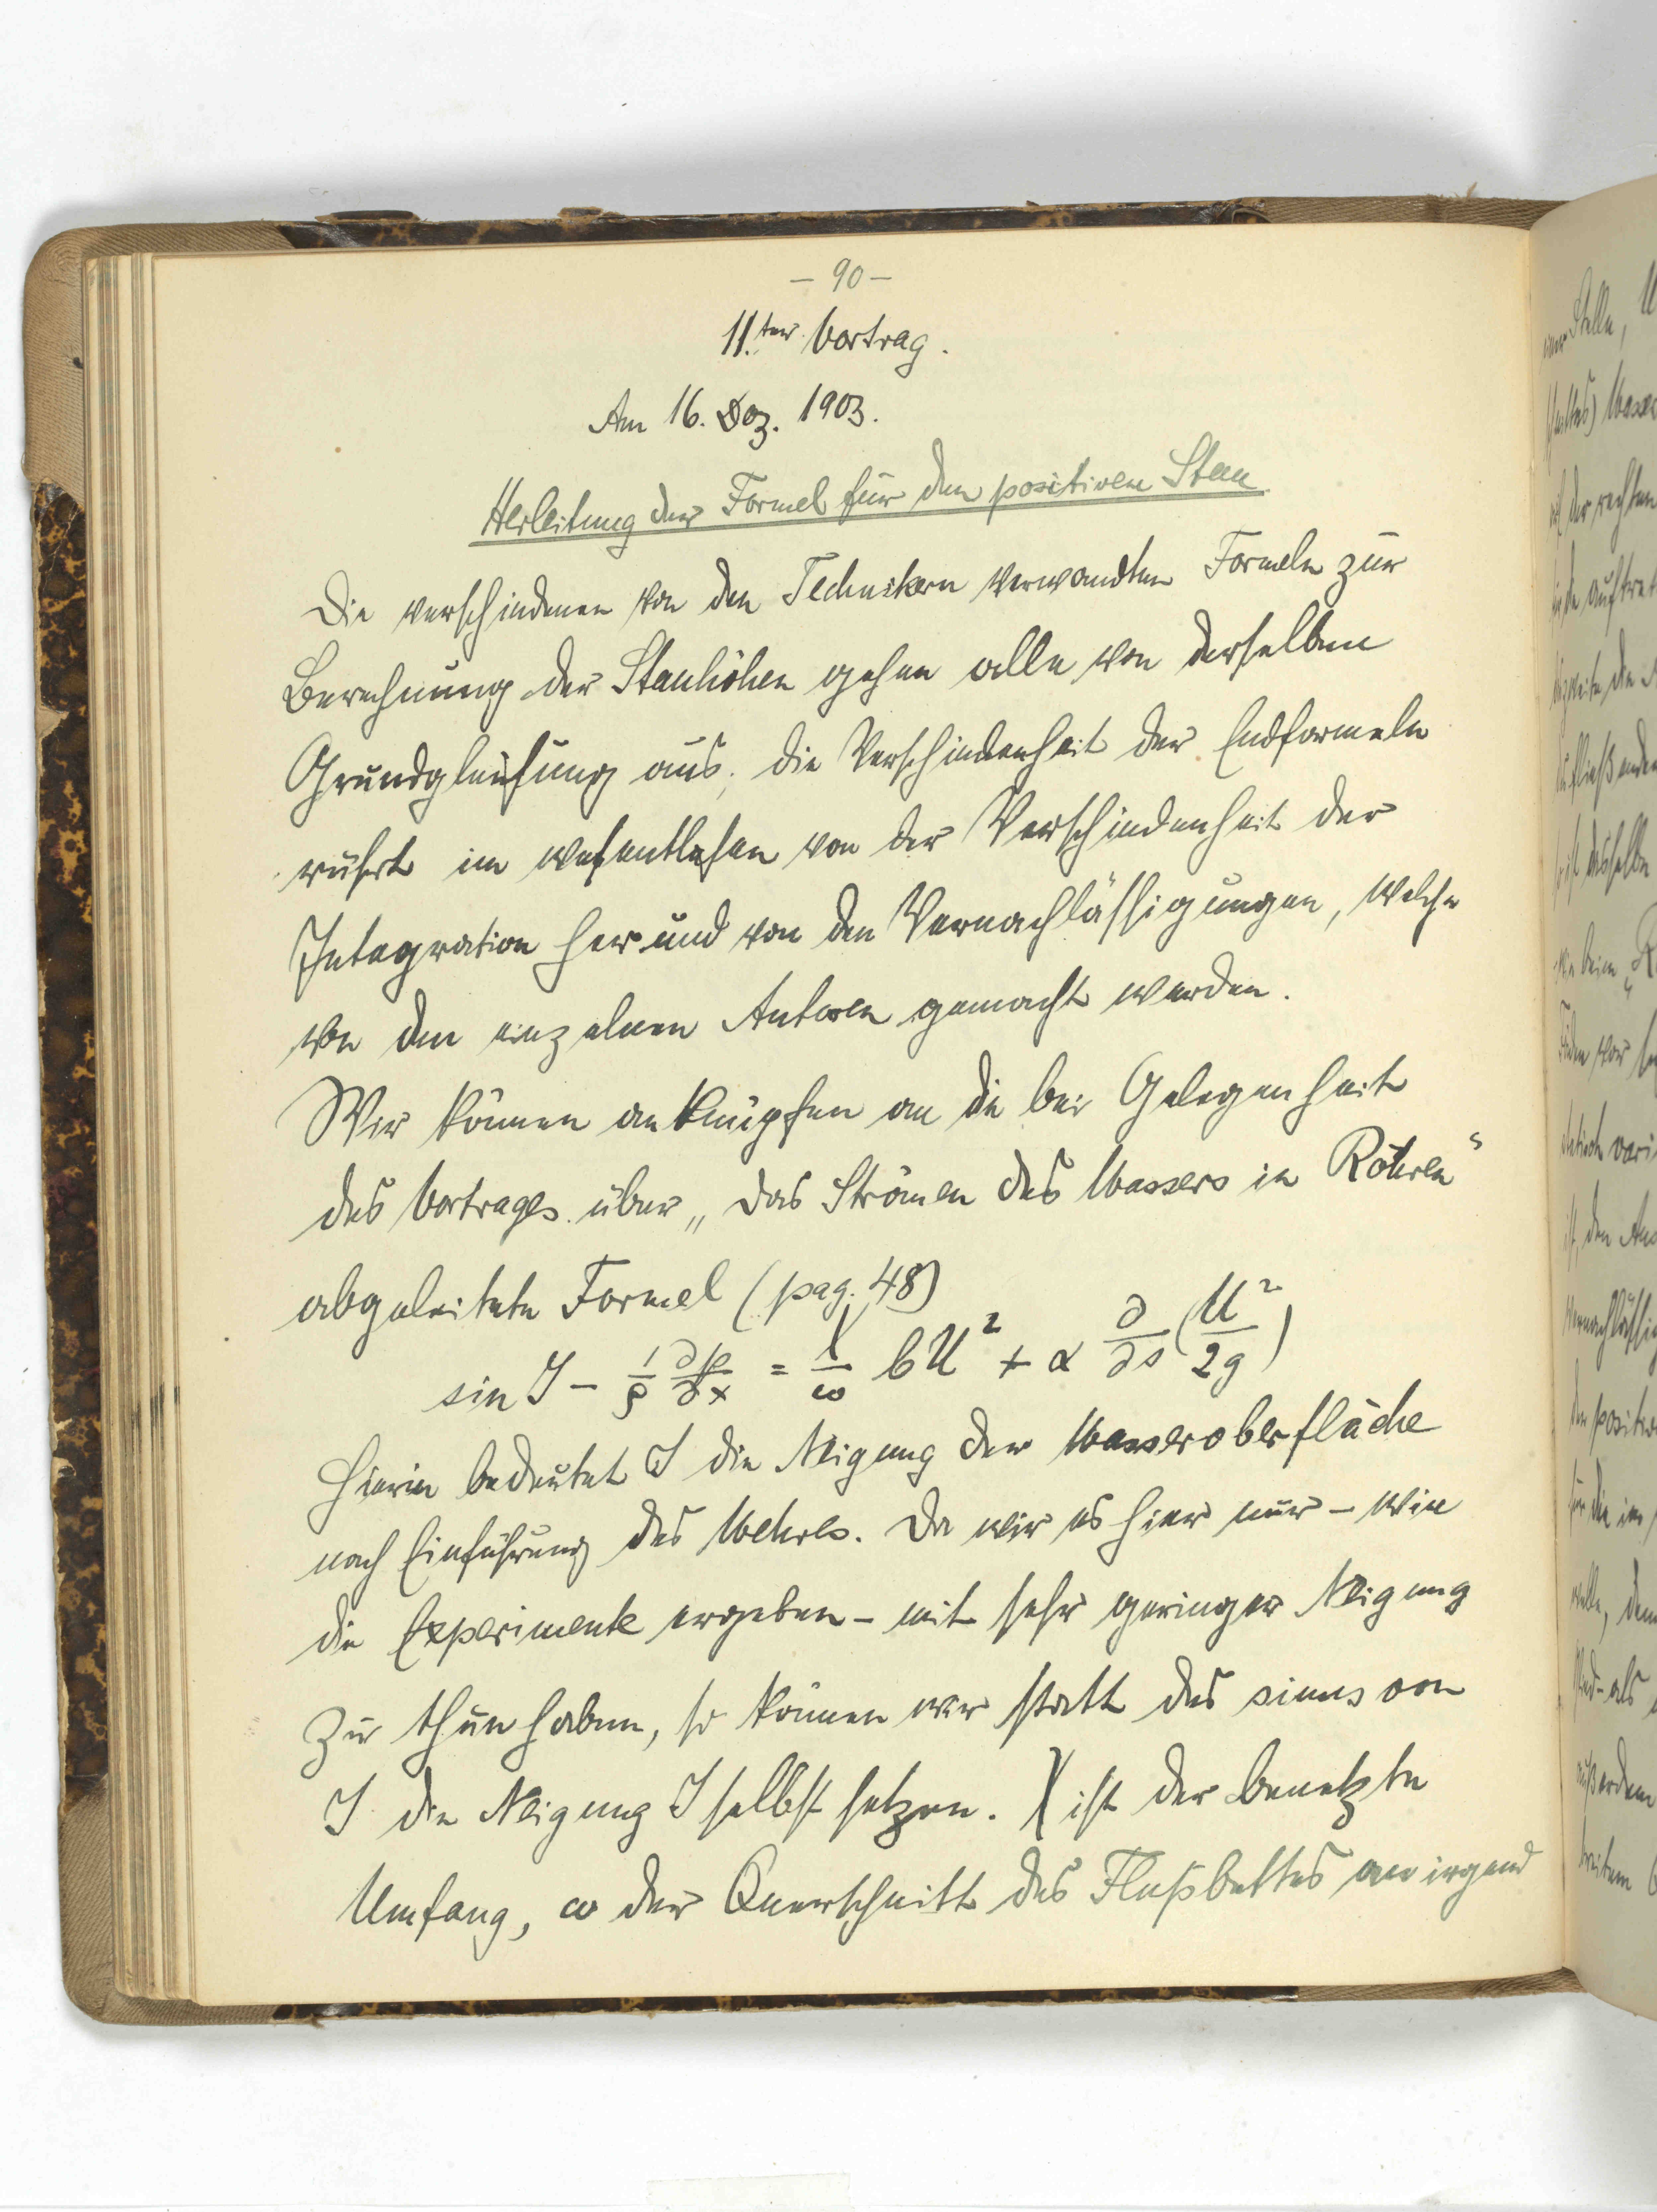 – 90 –
11.ter Vortrag.
Am 16. Dez. 1903.
Herleitung der Formel für den positiven Stau
Die verschiedenen von den Technikern verwandten Formeln zur
Berechnung der Stauhöhen gehen alle von derselben
Grundgleichung aus; die Verschiedenheit der Endformeln
rührt im wesentlichen von der Verschiedenheit der
Integration her und von den Vernachlässigungen, welche
von den einzelnen Autoren gemacht werden.
Wir können anknüpfen an die bei Gelegenheit
des Vortrages über „Das Strömen des Wassers in Röhren“
abgeleitete Formel (pag. 48)
sin J – 1/ρ ∂p/∂x = χ/ω b U² + α ∂/∂s (U²/2g)
Hierin bedeutet J die Neigung der Wasseroberfläche
nach Einführung des Wehres. Da wir es hier nur – wie
die Experimente ergeben – mit sehr geringer Neigung
zu thun haben, so können wir statt des sinus von
J die Neigung J selbst setzen. χ ist der benetzte
Umfang, ω der Querschnitt des Flußbettes an irgend
einer Stelle, U
der rechten